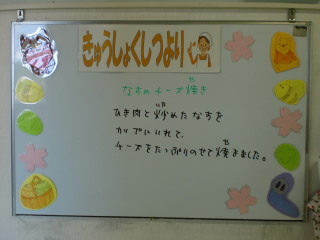 きゅうしょくしつより
なすのチーズ焼き
や
ひき肉と炒めたなすを
いた
カップにいれて、
チーズをたっぷりのせて焼きました。
や